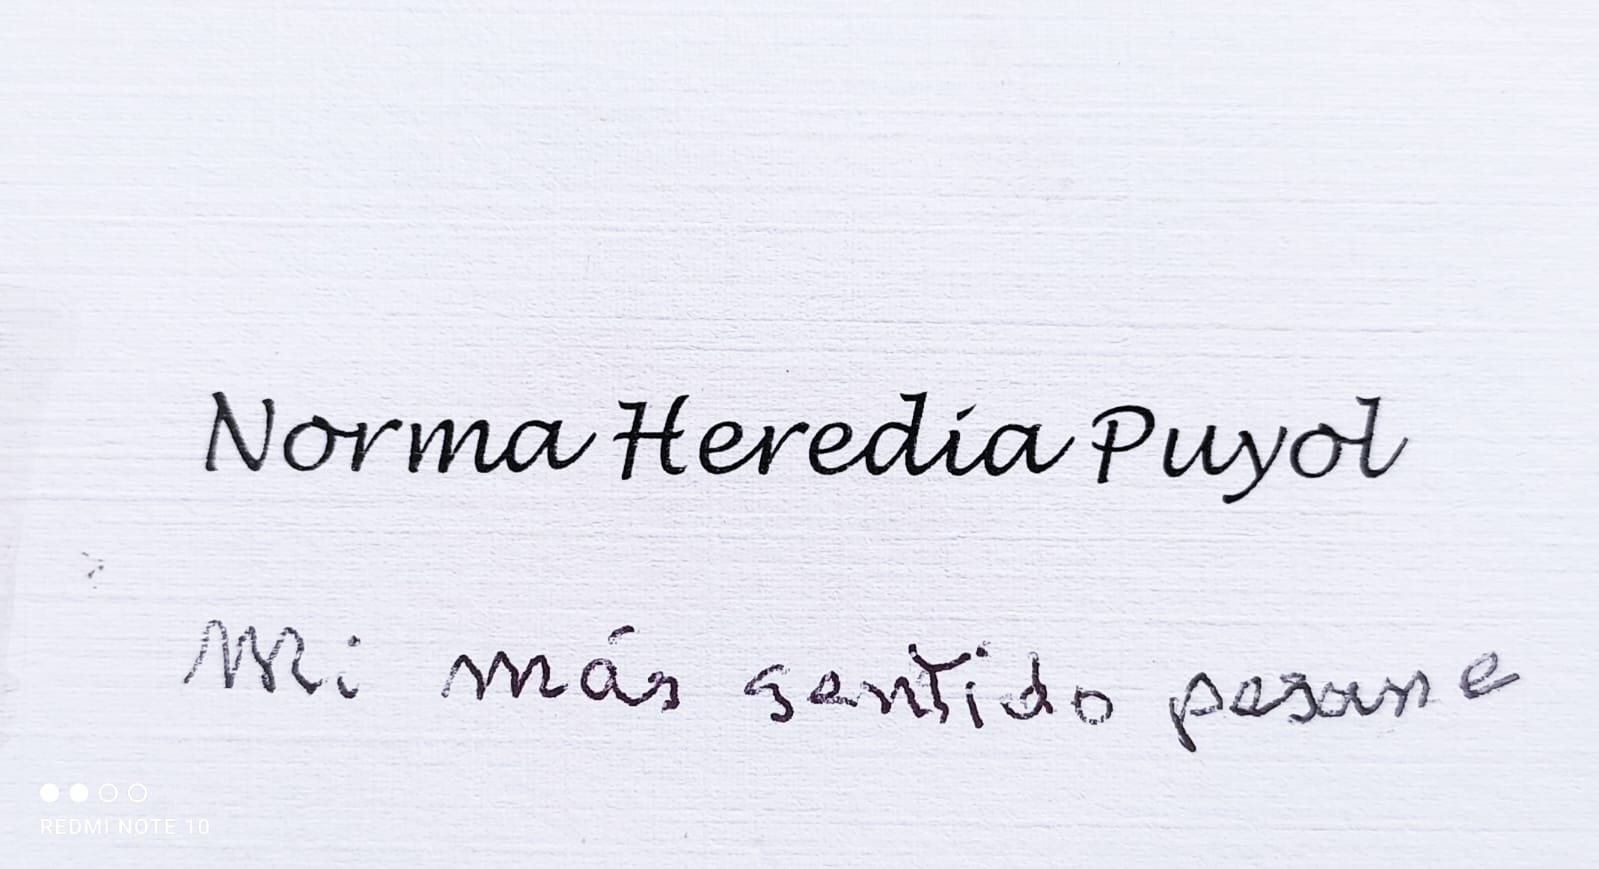 Norma Heredia Puyol
Mi más sentido pesame
REDMI NOTE 10